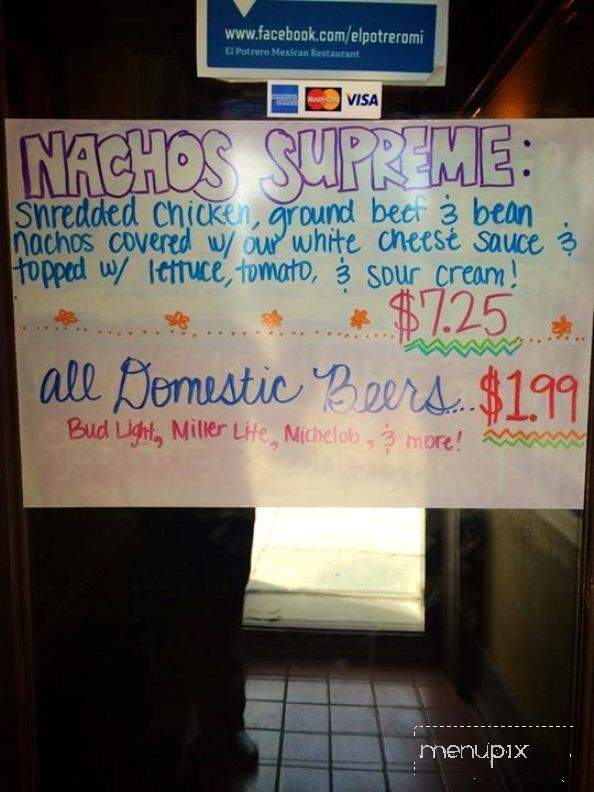 www.facebook.com/elpotreromi
El Potrero Mexican Restaurant
AMERICAN EXPRESS MasterCard VISA
NACHOS SUPREME:
Shredded chicken, ground beef & bean
nachos covered w/ our white cheese sauce &
topped w/ lettuce, tomato, & sour cream!
$7.25
all Domestic Beers... $1.99
Bud Light, Miller Lite, Michelob, & more!
menupix